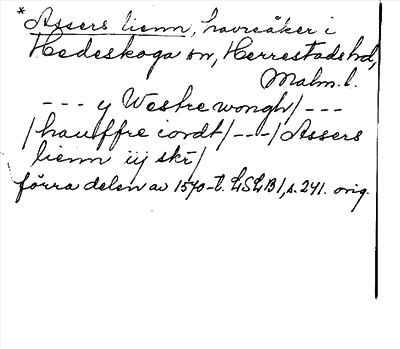 * Assers lienn, havreåker i
Hedeskoga sn, Herrestads hd,
Malm. l.
--- y Westre wongh/---
/hauffre iordt/---/Assers
lienn iij skr/
förra delen av 1570-t. LSLB1, s. 241. orig.